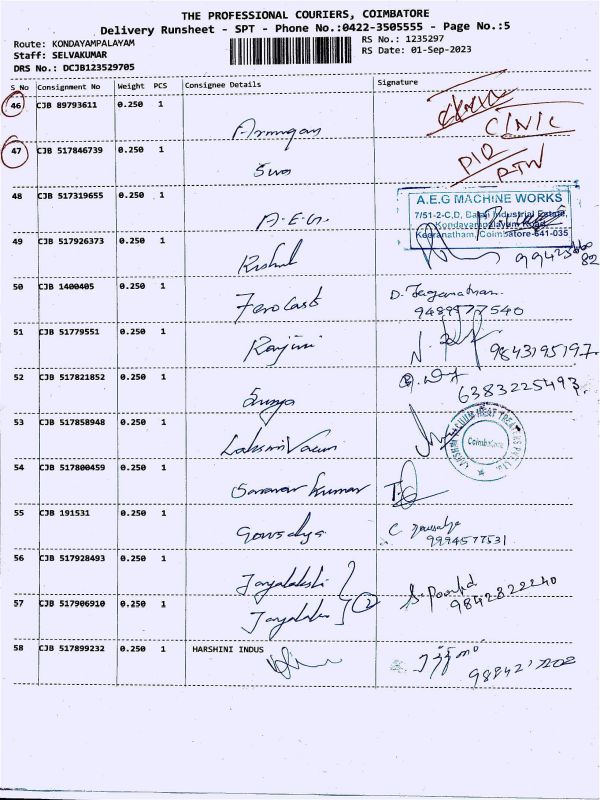 THE PROFESSIONAL COURIERS, COIMBATORE
Delivery Runsheet - SPT - Phone No.:0422-3505555 - Page No.:5
Route: KONDAYAMPALAYAM
RS No.: 1235297
Staff: SELVAKUMAR
RS Date: 01-Sep-2023
DRS No.: DCJB123529705
S No Consignment No Weight PCS Consignee Details Signature
46 CJB 89793611 0.250 1
Arumugam
C/N/C
47 CJB 517846739 0.250 1
Siva
PID
RTN
48 CJB 517319655 0.250 1
A.E.G.
A.E.G MACHINE WORKS
7/51-2-C,D, Balaji Industrial Estate,
Kondayampalayam Road,
Keeranatham, Coimbatore-641-035
49 CJB 517926373 0.250 1
50 CJB 1400405 0.250 1
Ferocast
D. Jaganathan
9489577540
51 CJB 51779551 0.250 1
Ranjini
9843195197.
52 CJB 517821852 0.250 1
Surya
6383225493.
53 CJB 517858948 0.250 1
Lakshmi Vacum
Coimbatore
54 CJB 517800459 0.250 1
Saravana Kumar
55 CJB 191531 0.250 1
Gowsalya
C
9994577531
56 CJB 517928493 0.250 1
Jayalakshi
9842822240
57 CJB 517906910 0.250 1
2
58 CJB 517899232 0.250 1 HARSHINI INDUS